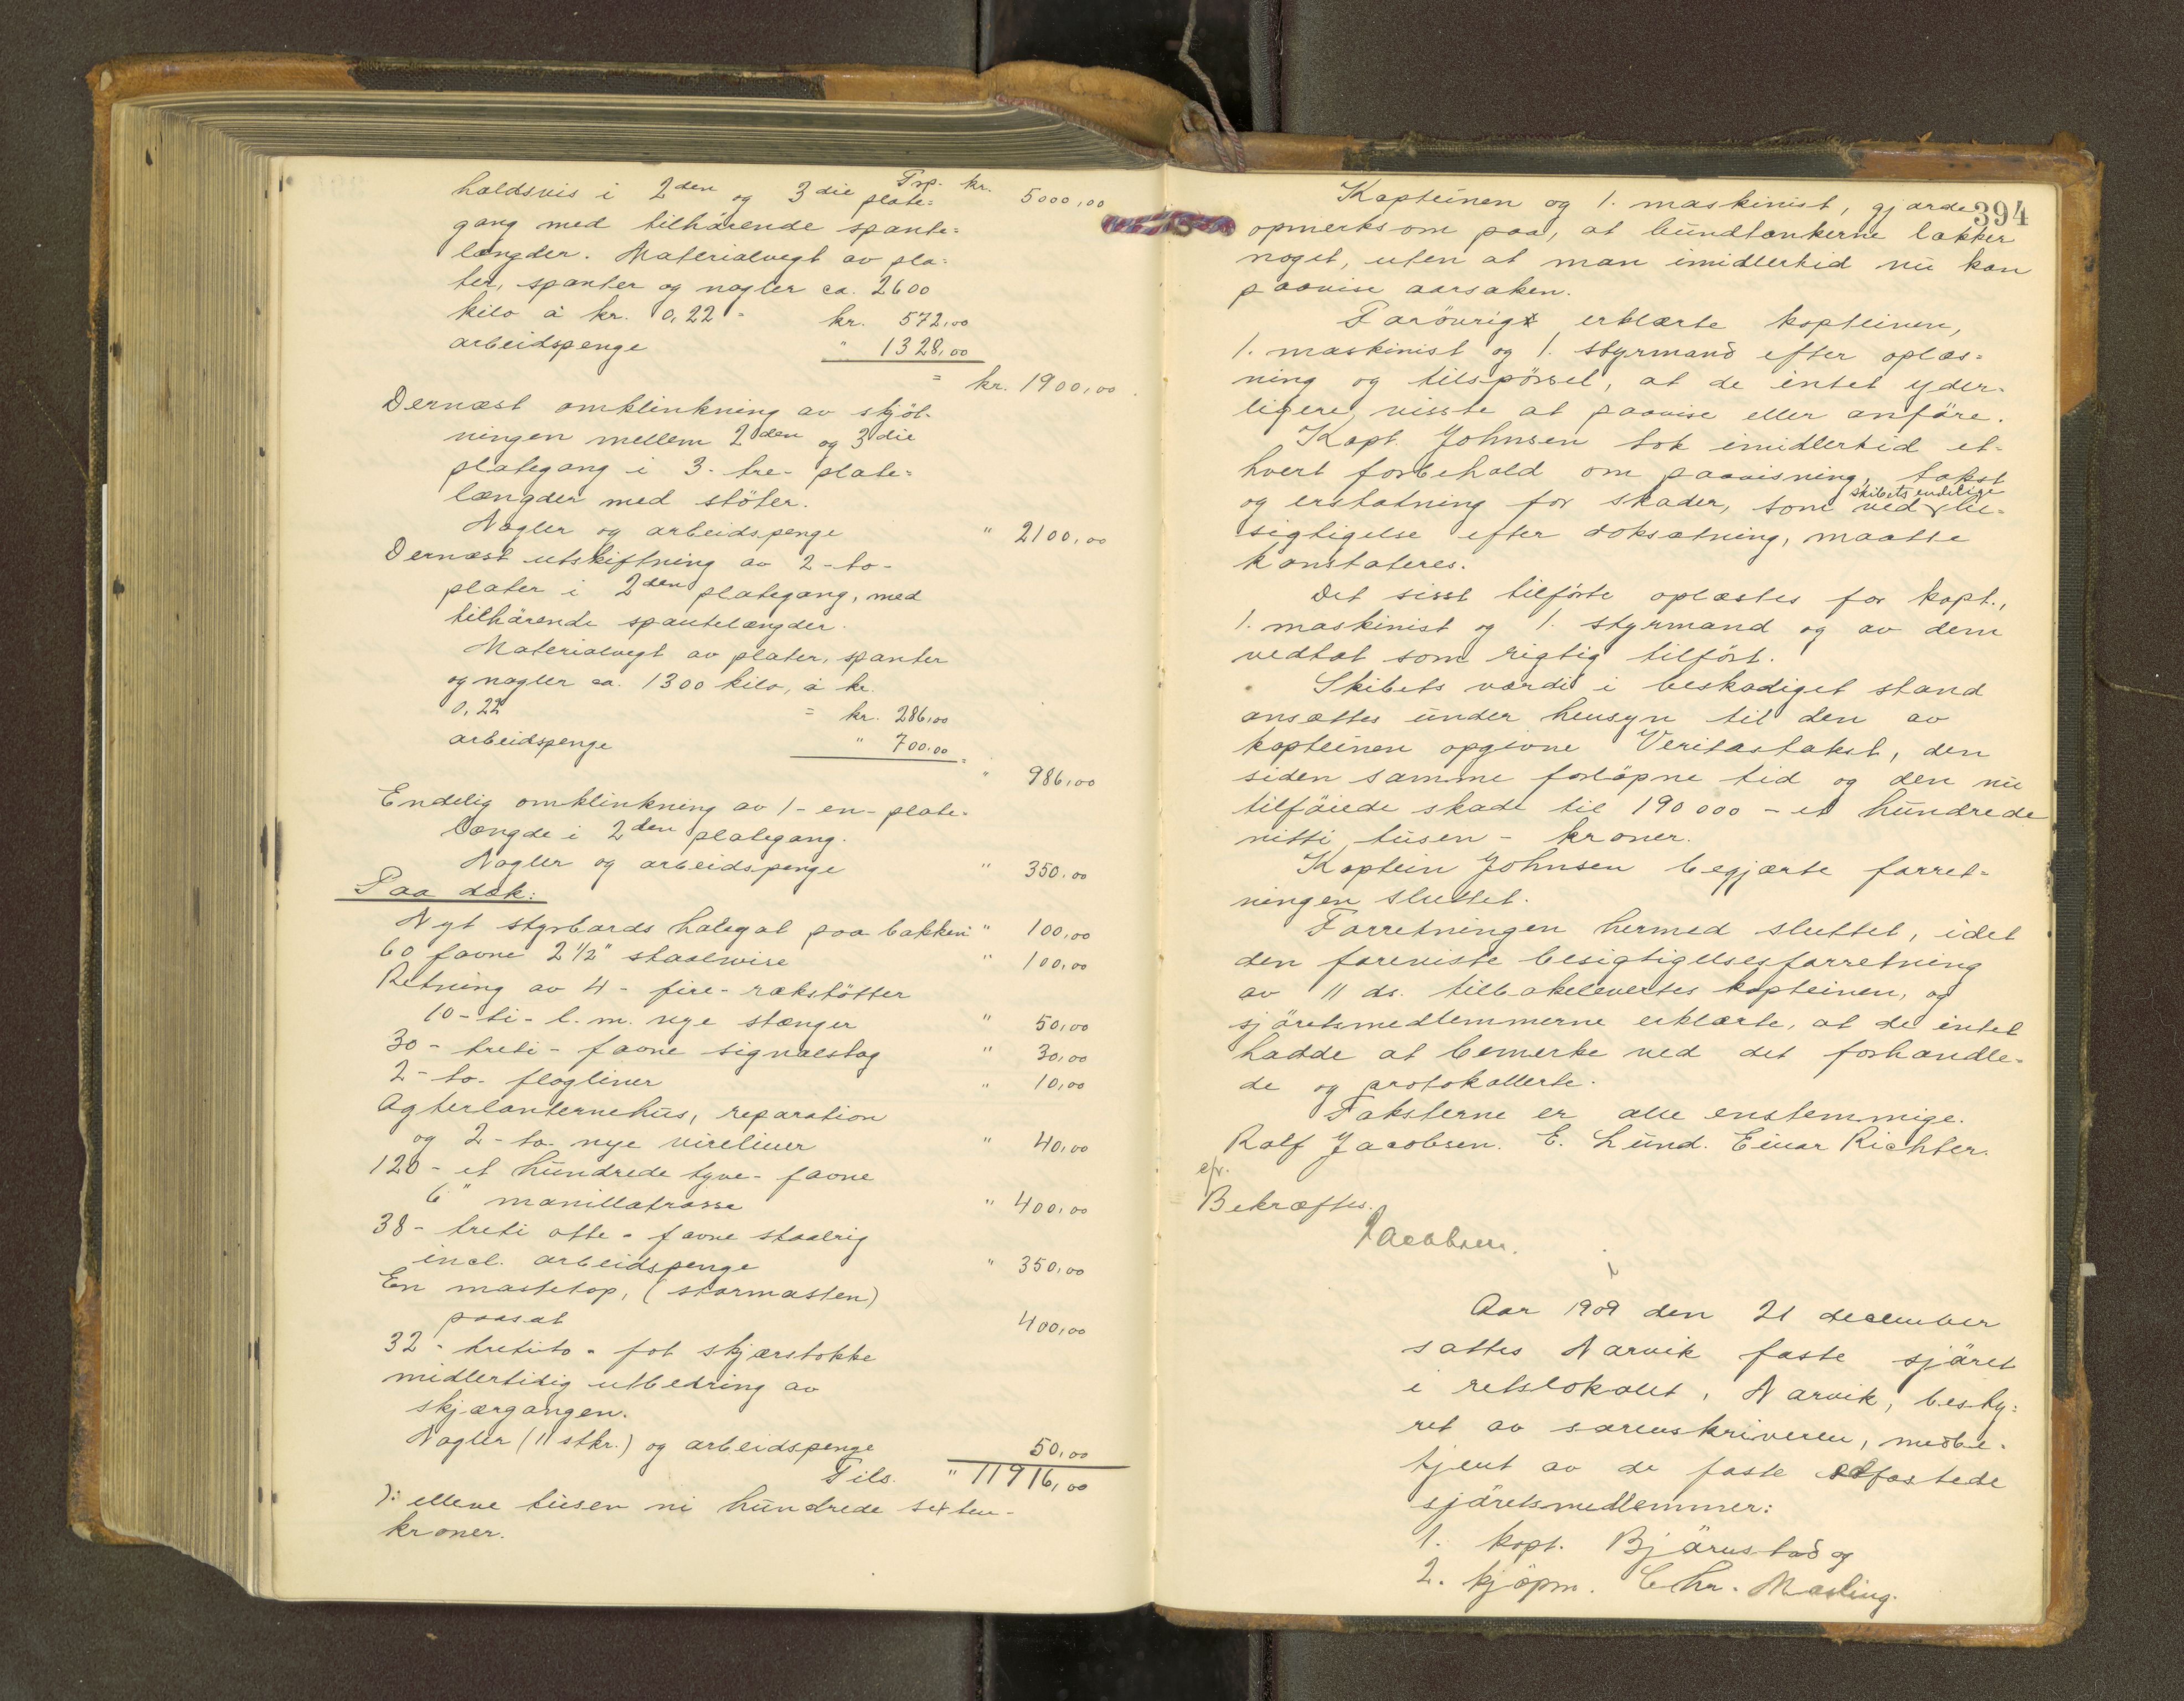 Trp. kr. 5000,00
holdsvis i 2den og 3die plate=
gang med tilhörende spante=
længder. Materialvegt av pla=
ter, spanter og nagler ca. 2600
kilo à kr. 0,22 = kr. 572,00
arbeidspenge " 1328,00
= kr. 1900,00
Dernæst omklinkning av skjöt-
ningen mellem 2den og 3die
plategang i 3-tre-plate=
længder med stöter.
Nagler og arbeidspenge " 2100,00
Dernæst utskiftning av 2-to-
plater i 2den plategang, med
tilhörende spantelængder.
Materialvegt av plater, spanter
og nagler ca. 1300 kilo, à kr.
0,22 = kr. 286,00
arbeidspenge " 700.00 =
" 986,00
Endelig omklinkning av 1-en-plate-
længde i 2den plategang.
Nagler og arbeidspenge " 350.00
Paa dæk:
Nyt styrbords halegat paa bakken " 100,00
60 favne 2 1/2" staalwire " 100,00
Retning av 4-fire-rækstötter
10-ti-l.m. nye stænger " 50,00
30-treti-favne signalstag " 30,00
2-to-flagliner " 10,00
Agterlanternehus, reparation
og 2-to-nye vireliner " 40,00
120-et hundrede tyve-favne
6" manillatrosse " 400,00
38-treti otte-favne staalrig
incl. arbeidspenge " 350,00
En mastetop, (stormasten)
paasat 400,00
32-tretito-fot skjærstokke
midlertidig utbedring av
skjærgangen.
Nagler (11 stkr.) og arbeidspenge 50,00
Tils. " 11916,00
): elleve tusen ni hundrede sexten-
kroner.
394
Kapteinen og 1. maskinist, gjorde
opmerksom paa, at bundtankerne lækker
noget, uten at man imidlertid nu kan
paavise aarsaken.
Forövrigt erklærte kapteinen,
1. maskinist og 1. styrmand efter oplæs-
ning og tilspörsel, at de intet yder-
ligere visste at paavise eller anföre.
Kapt. Johnsen tok imidlertid et-
hvert forbehold om paavisning, takst
og erstatning for skader, som ved skibets endelige be-
sigtigelse efter doksætning, maatte
konstateres.
Det sisst tilförte oplæstes for kapt.,
1. maskinist og 1. styrmand og av dem
vedtat som rigtig tilfört.
Skibets værdi i beskadiget stand
ansættes under hensyn til den av
kapteinen opgivne Veritastakst, den
siden samme forlöpne tid og den nu
tilföiede skade til 190 000 - et hundrede
nitti tusen - kroner.
Kaptein Johnsen begjærte forret-
ningen sluttet.
Forretningen hermed sluttet, idet
den foreviste besigtigelsesforretning
av 11 ds. tilbakelevertes kapteinen, og
sjöretsmedlemmerne erklærte, at de intet
hadde at bemerke ved det forhandle-
de og protokollerte.
Taksterne er alle enstemmige.
Rolf Jacobsen. E. Lund. Einar Richter.
efr.
Bekræftes.
Jacobsen.
Aar 1909 den 21 december
sattes Narvik faste sjöret
i retslokalet, Narvik, besty=
ret av sorenskriveren, medbe-
tjent av de faste edfæstede
sjöretsmedlemmer:
1. kapt. Bjørnstad og
2. kjöpm. Chr. Mæling.